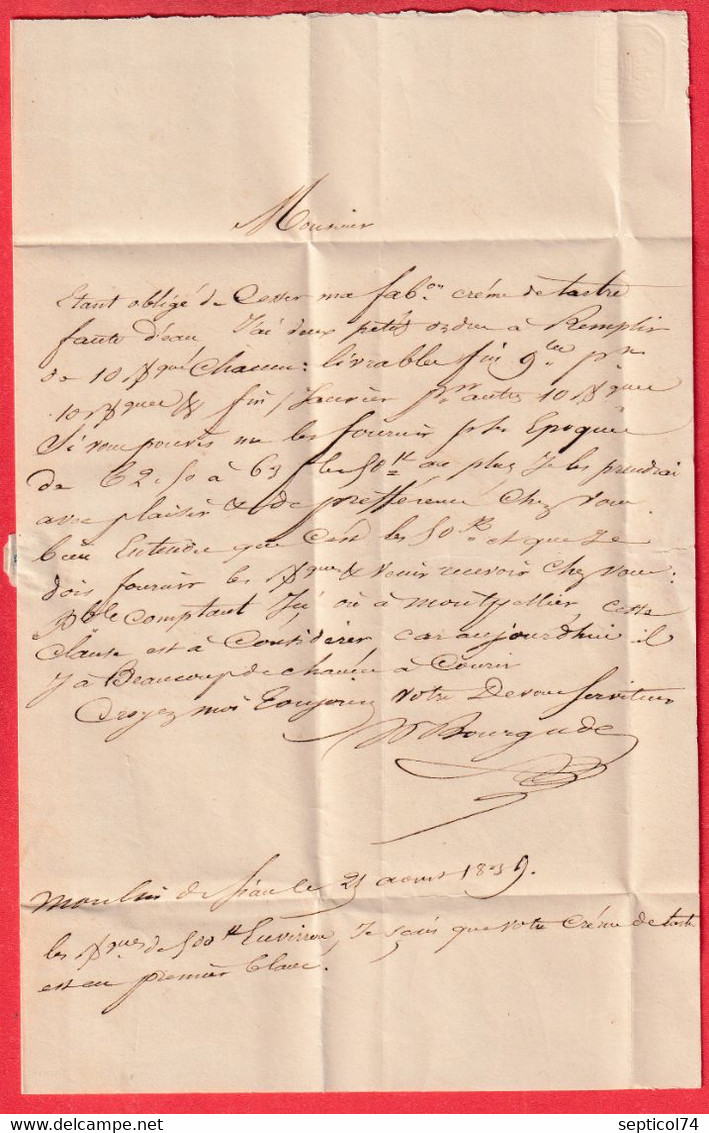 Monsieur
Etant obligé de Cesser ma fab.on créme de tartre
faute d'eau, J'ai deux petits ordre à Remplir
de 10 Bques Chacun: livrables fin 9.bre pn
10 Bques & fin Janvier p.r autres 10 Bques
Si vous pouvés me les fournir p les Epoques
de 62.50 à 63 f les 50 k au plus Je les prendrai
avec plaisir & de préfférence Chez vous.
bien Entendu que C'est les 50 k. et que Je
dois fournir les Bques & venir recevoir Chez vous:
P.ble comptant Ici où à Montpellier, cette
Clause est à Considérer car aujourdhui il
y à Beaucoup de chances à Courir
Croyez moi Toujours votre Devoué Serviteur
Bourgade
Moulin de 21 aout 1839.
les Bques de 500 k Envirron, Je sais que votre Créme de tartre
est en premier blanc.
septicol74